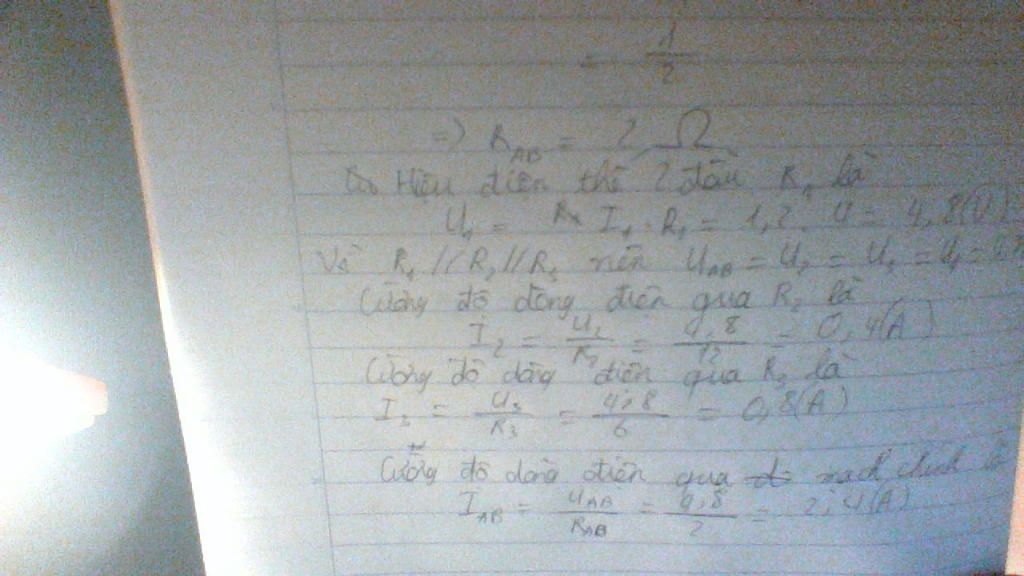 = 1/2
=> R_AB = 2 Ω
Hiệu điện thế 2 đầu R₁ là
U₁ = I₁ . R₁ = 1,2 . 4 = 4,8(V)
Vì R₁ // R₂ // R₃ nên U_AB = U₂ = U₃ = U₁ =
Cường độ dòng điện qua R₂ là
I₂ = U₂/R₂ = 4,8/12 = 0,4(A)
Cường độ dòng điện qua R₃ là
I₃ = U₃/R₃ = 4,8/6 = 0,8(A)
Cường độ dòng điện qua mạch chính là
I_AB = U_AB/R_AB = 4,8/2 = 2,4(A)